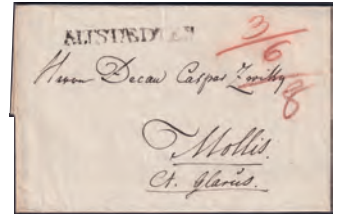 ALTSTÆDTEN
3/6
8
Herrn Decan Caspar Zwicky
Mollis.
Ct. Glarus.